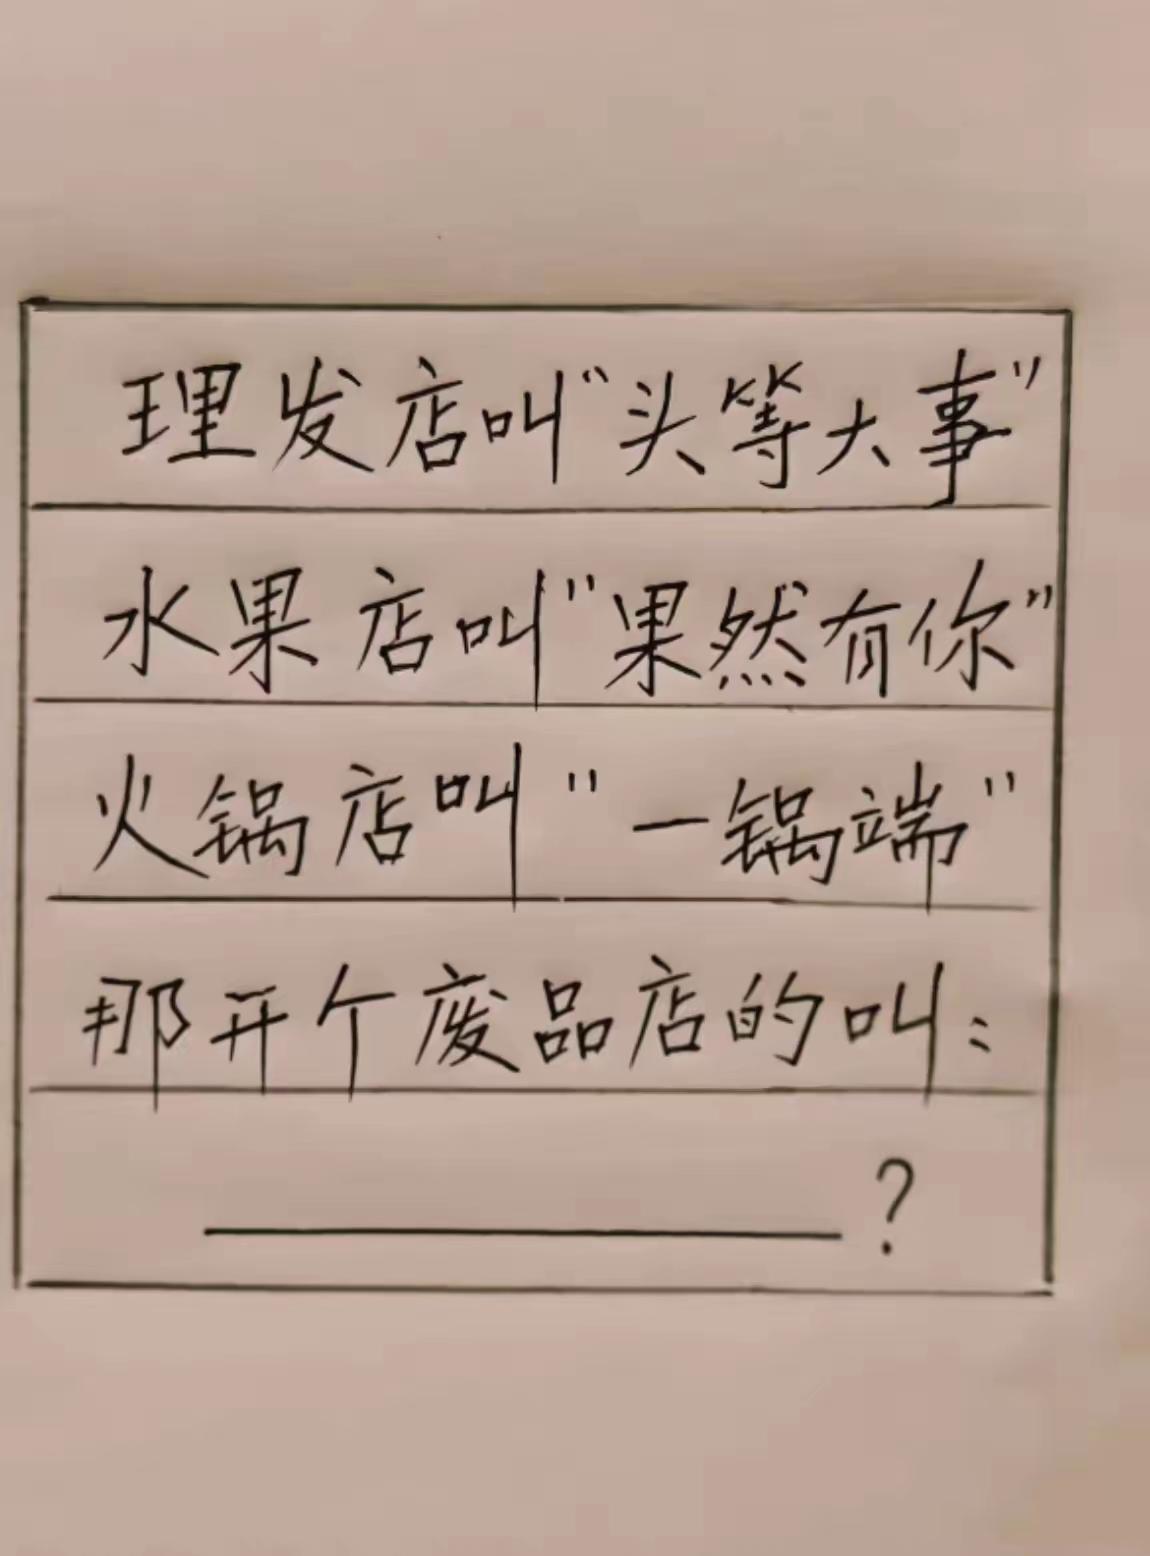 理发店叫“头等大事”
水果店叫“果然有你”
火锅店叫“一锅端”
那开个废品店的叫：
？